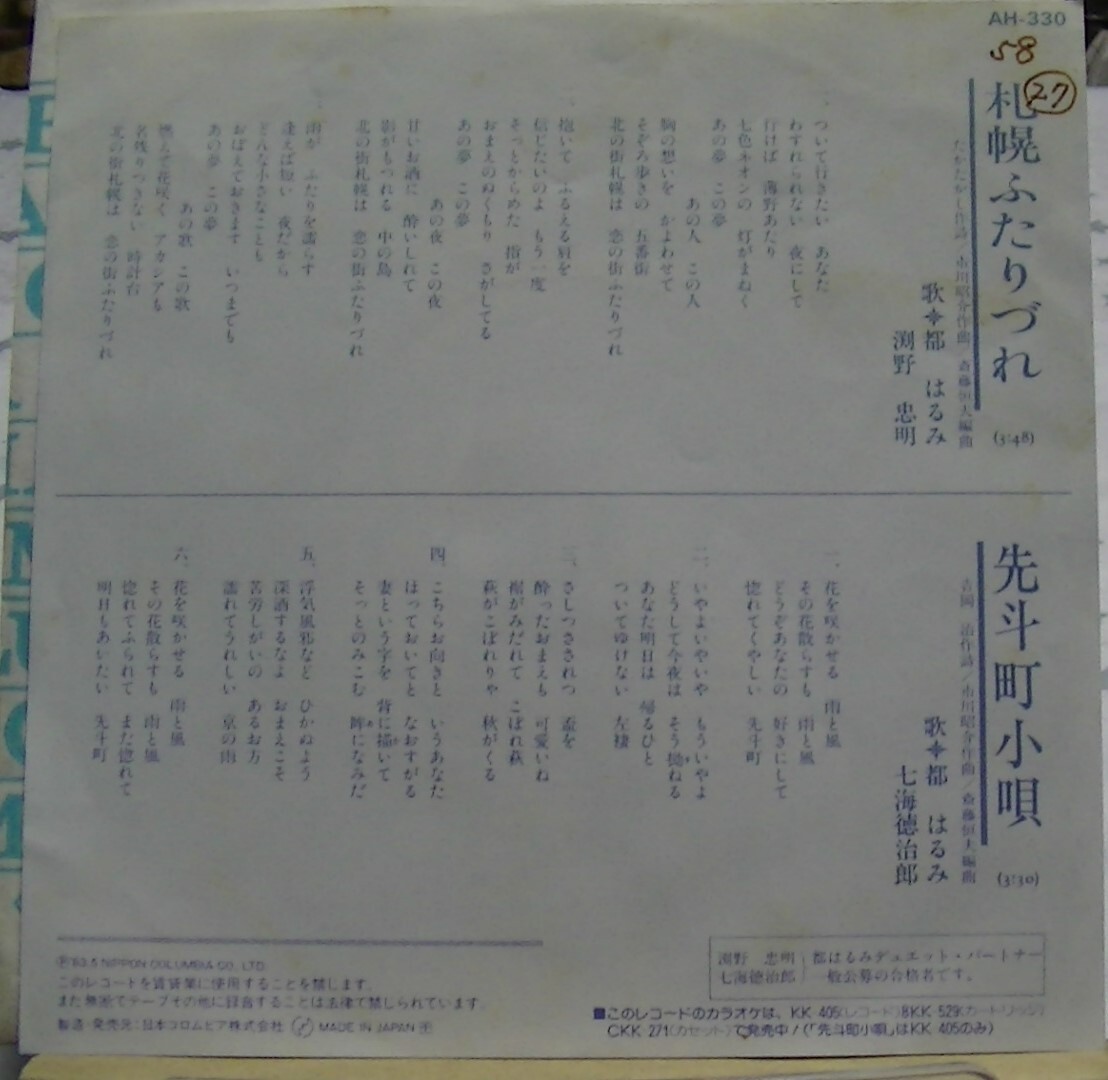 AH-330
58
27
札幌ふたりづれ
(3:48)
たかたかし作詩/市川昭介作曲/斎藤恒夫編曲
歌✦都 はるみ
渕野 忠明
一、ついて行きたい あなた
わすれられない 夜にして
行けば 薄野あたり
七色ネオンの 灯がまねく
あの夢 この夢
あの人 この人
胸の想いを かよわせて
そぞろ歩きの 五番街
北の街札幌は 恋の街ふたりづれ
抱いて ふるえる肩を
信じたいのよ もう一度
そっとからめた 指が
おまえのぬくもり さがしてる
あの夢 この夢
あの夜 この夜
甘いお酒に 酔いしれて
影がもつれる 中の島
北の街札幌は 恋の街ふたりづれ
雨が ふたりを濡らす
逢えば短い 夜だから
どんな小さなことも
おぼえておきます いつまでも
あの夢 この夢
あの歌 この歌
燃えて花咲く アカシアも
名残りつきない 時計台
北の街札幌は 恋の街ふたりづれ
先斗町小唄
(3:30)
吉岡 治作詩/市川昭介作曲/斎藤恒夫編曲
歌✦都 はるみ
七海徳治郎
一、花を咲かせる 雨と風
その花散らすも 雨と風
どうぞあなたの 好きにして
惚れてくやしい 先斗町
二、いやよいやいや もういやよ
どうして今夜は そう拗ねる
あなた明日は 帰るひと
ついてゆけない 左褄
三、さしつさされつ 盃を
酔ったおまえも 可愛いね
裾がみだれて こぼれ萩
萩がこぼれりゃ 秋がくる
四、こちらお向きと いうあなた
はっておいてと なおすがる
妻という字を 背に描いて
そっとのみこむ 眸になみだ
五、浮気風邪など ひかぬよう
深酒するなよ おまえこそ
苦労しがいの あるお方
濡れてうれしい 京の雨
六、花を咲かせる 雨と風
その花散らすも 雨と風
惚れてふられて また惚れて
明日もあいたい 先斗町
渕野 忠明
七海徳治郎
都はるみデュエット・パートナー
一般公募の合格者です。
■このレコードのカラオケは、KK-405(レコード)8KK-529(カートリッジ)
CKK-271(カセット)で発売中!(「先斗町小唄」はKK-405のみ)
Ⓟ'83.5 NIPPON COLUMBIA CO., LTD.
このレコードを賃貸業に使用することを禁します。
また無断でテープその他に録音することは法律で禁じられています。
製造・発売元:日本コロムビア株式会社 MADE IN JAPAN